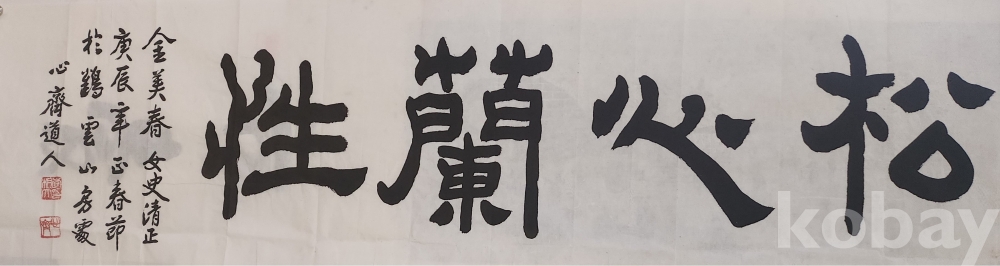 松心蘭性
金美春 女史清正
庚辰年正春節
於鷄雲山房處
心齋道人
kobay